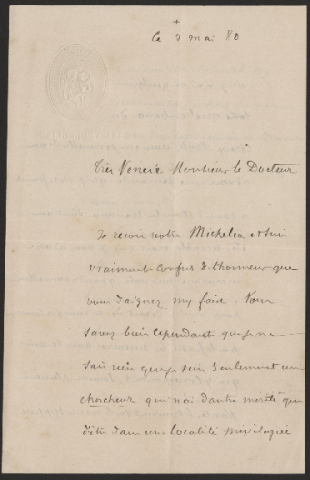 +
Le 3 mai 80
Très Vénéré Monsieur le Docteur
Je reçois notre Michelia et suis
vraiment confus de l'honneur que
vous daignez m'y faire. Vous
savez bien cependant que je ne
sais rien que je suis seulement un
chercheur qui n'ai d'autre mérite que
d'être dans une localité privilégiée